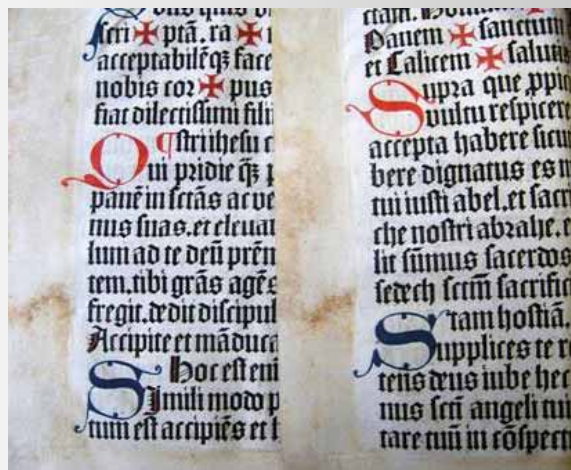 scri✠ptā. ra✠
acceptabilēq̄ȝ face
nobis cor✠pus
fiat dilectissimi fili
¶stri ihesu
Qui pridie q̄ȝ p
panē in sctās ac ve
nus suas. et elevat
lum ad te deū prēm
tem. tibi grās agēs
fregit. dedit discipul
Accipite et māduca
Hoc est eni
Simili modo p
tum est accipiēs et h
Panem ✠ sanctum
et Calicem ✠ salutis
Supra que ꝓpici
vultu respicere
accepta habere sicu
bere dignatus es m
tui iusti abel. et sacri
che nostri abrahe. e
lit sūmus sacerdos
sedech sctm̄ sacrifici
stam hostiā.
Supplices te r
tens deus iube hec
nus scti angeli tui
tare tuū in cōspect